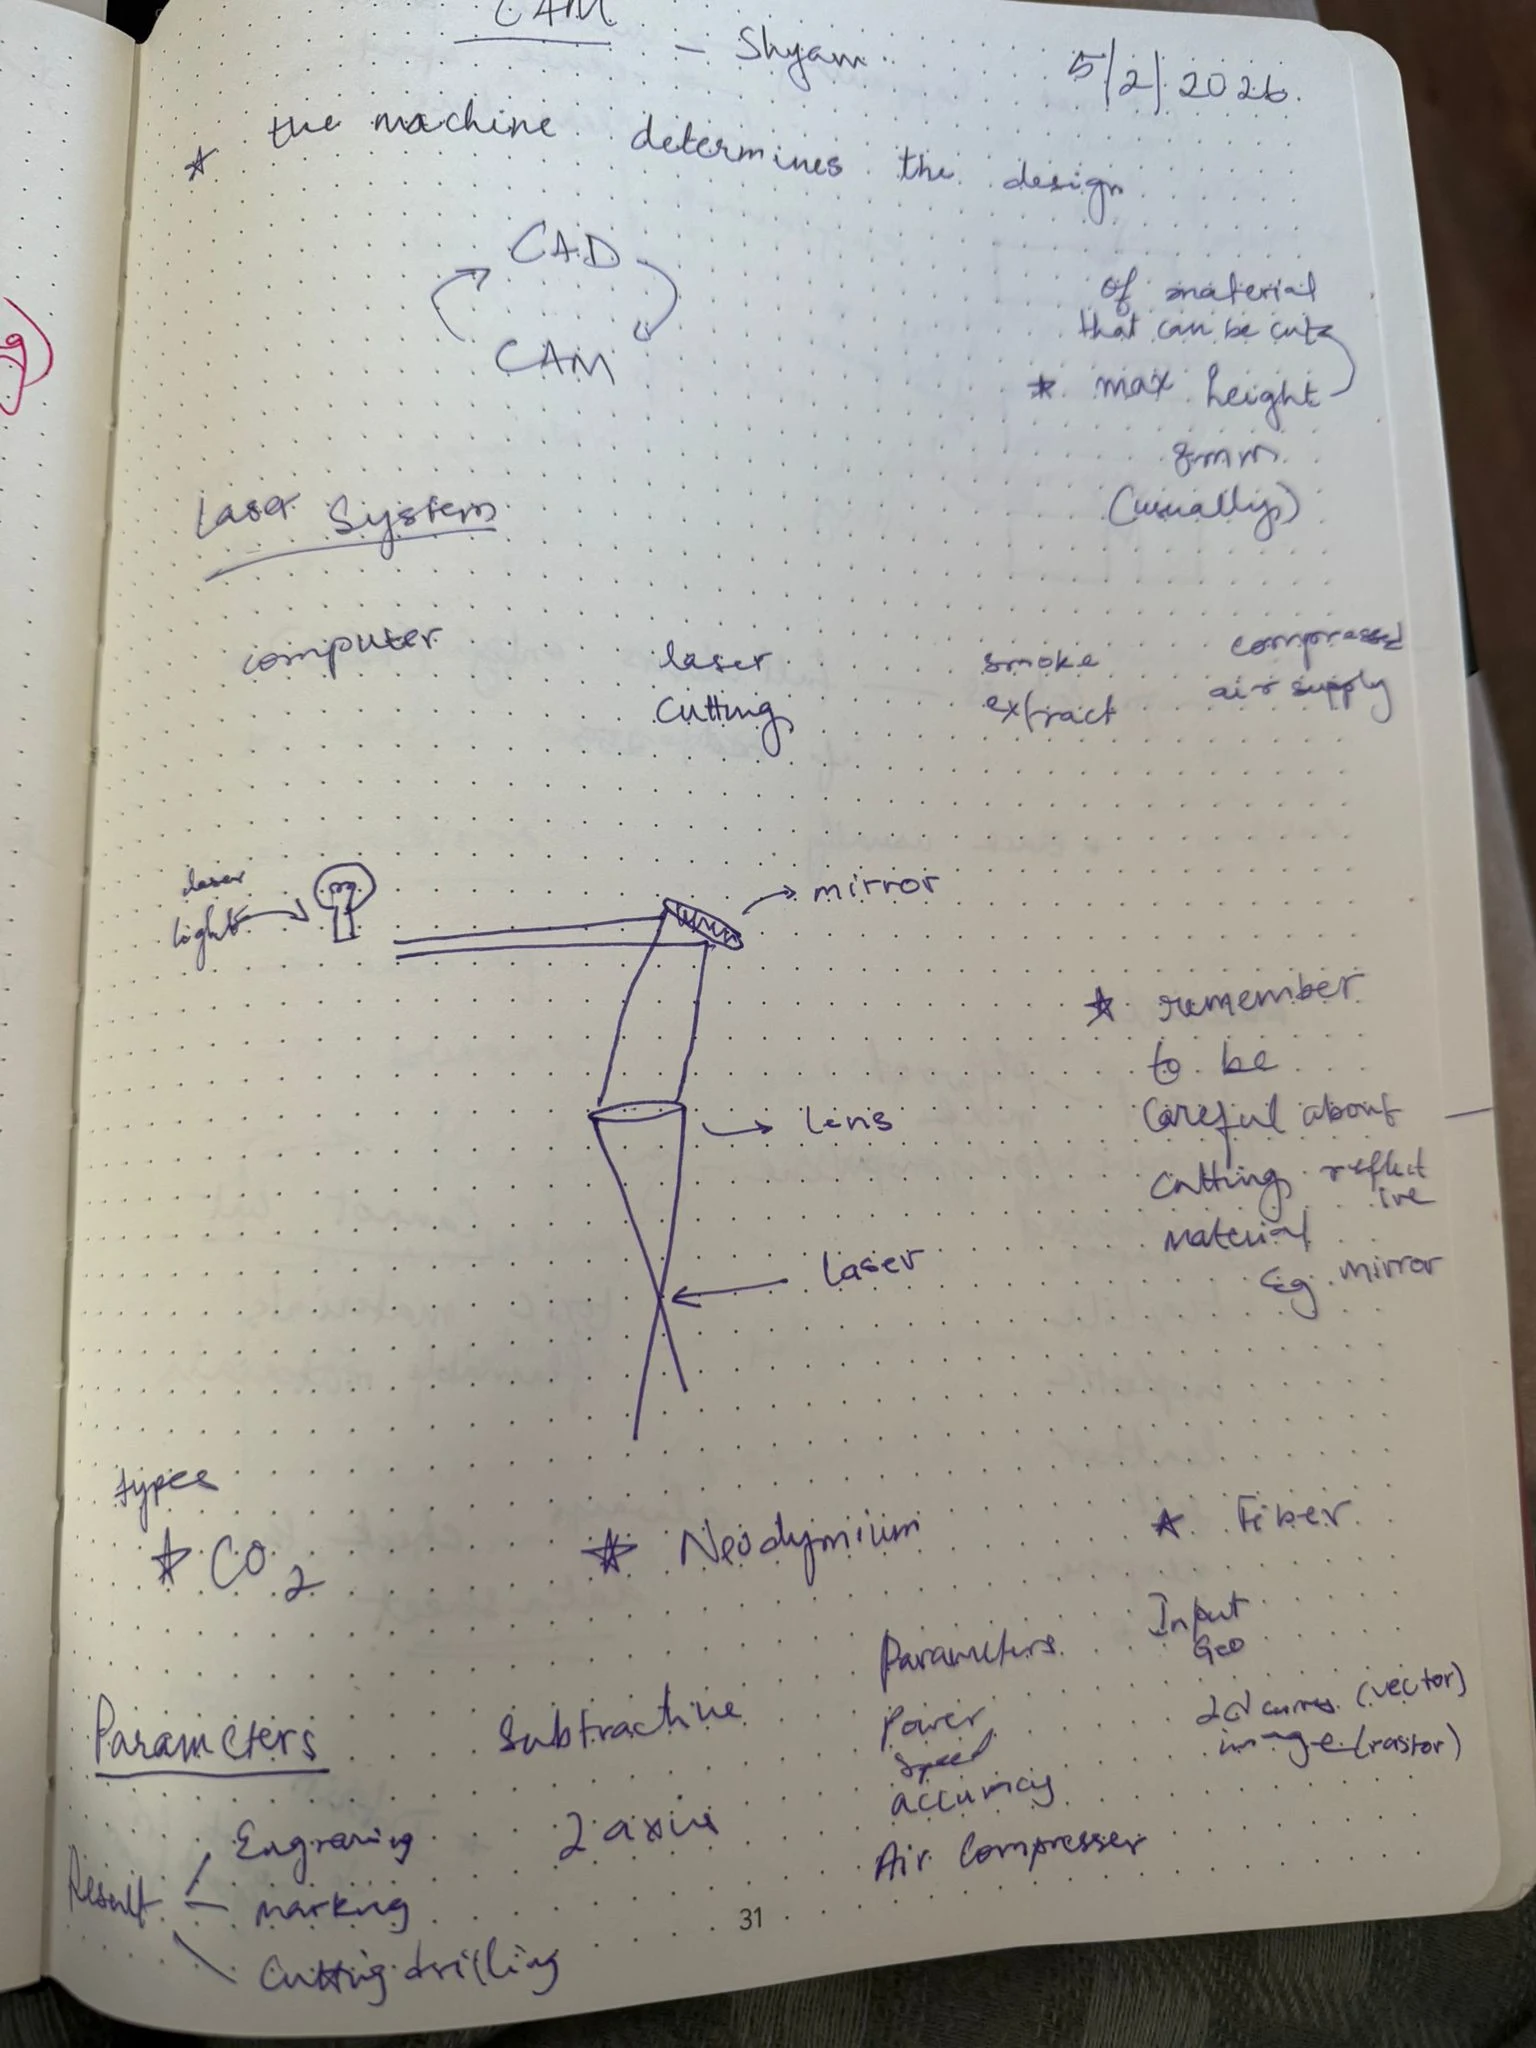 CAM - Shyam
5/2/2026.
* the machine determines the design
CAD
CAM
of material
that can be cut
* max height
8mm
(usually)
Laser System
computer
laser
cutting
smoke
extract
compressed
air supply
laser
light
mirror
lens
laser
* remember
to be
careful about
cutting reflect
ive
material
Eg. mirror
types
* CO2
* Neodymium
* Fiber
Parameters
Subtractive
2 axis
Result
Engraving
marking
Cutting drilling
Parameters
Power
Speed
accuracy
Air Compresser
Input
Geo
2d curves (vector)
image (rastor)
31